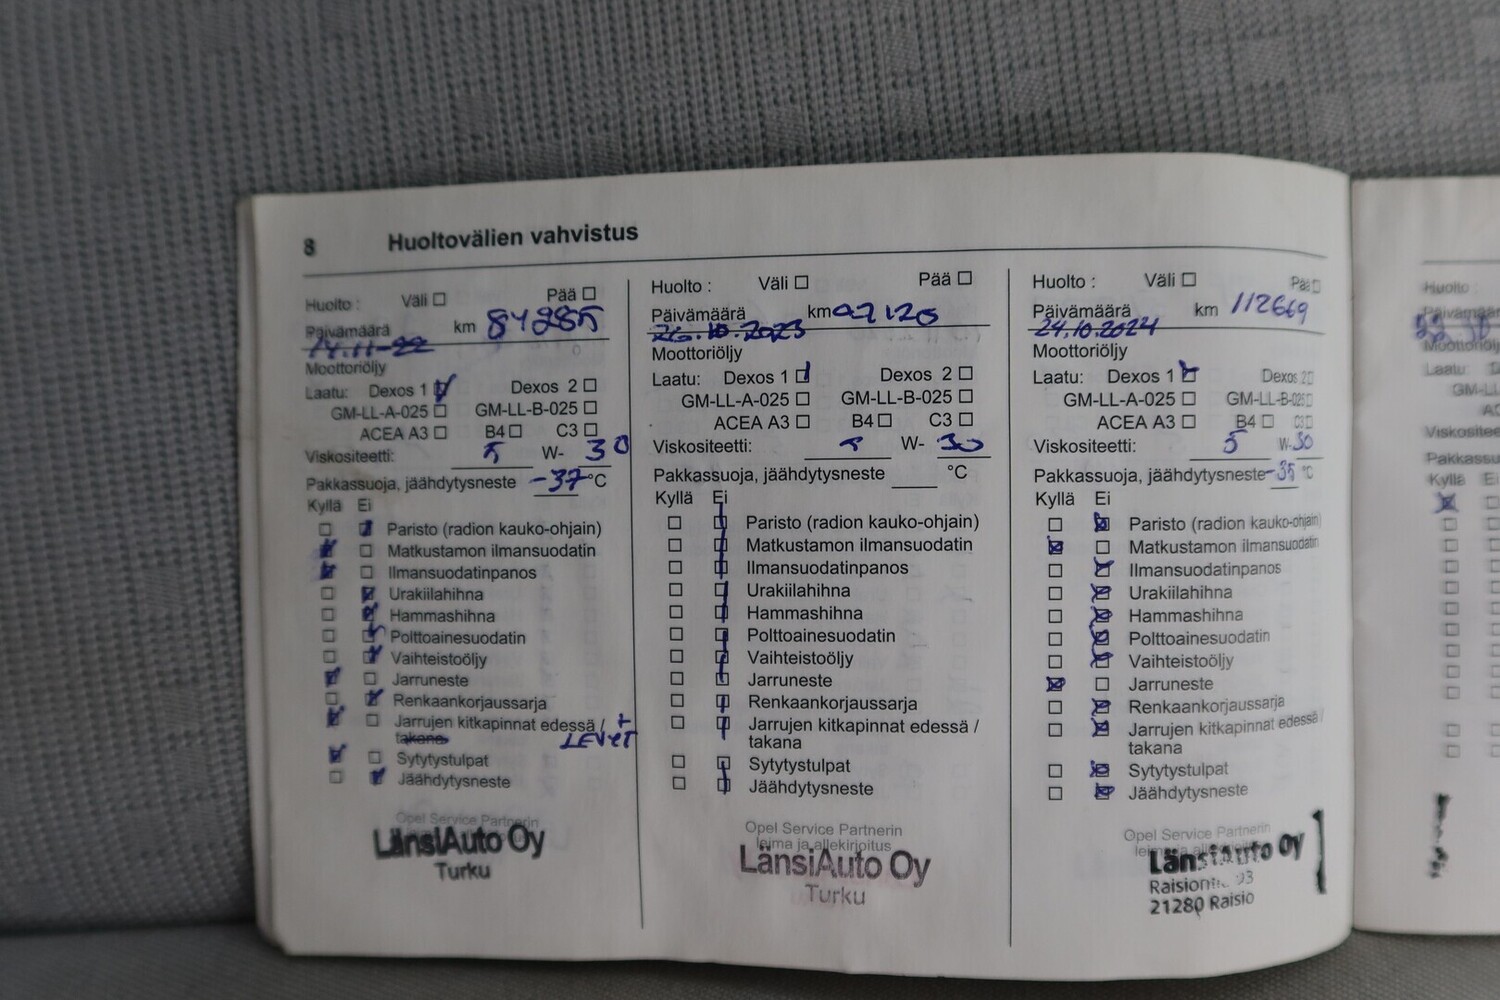 8 Huoltovälien vahvistus
Huolto : Väli Pää
Päivämäärä km 84285
14.11-22
Moottoriöljy
Laatu: Dexos 1 Dexos 2
GM-LL-A-025 GM-LL-B-025
ACEA A3 B4 C3
Viskositeetti: 5 W- 30
Pakkassuoja, jäähdytysneste -37 °C
Kyllä Ei
Paristo (radion kauko-ohjain)
Matkustamon ilmansuodatin
Ilmansuodatinpanos
Urakiilahihna
Hammashihna
Polttoainesuodatin
Vaihteistoöljy
Jarruneste
Renkaankorjaussarja
Jarrujen kitkapinnat edessä / +
takana LEVYT
Sytytystulpat
Jäähdytysneste
Opel Service Partnerin
LänsiAuto Oy
Turku
Huolto : Väli Pää
Päivämäärä km 97120
26.10.2023
Moottoriöljy
Laatu: Dexos 1 Dexos 2
GM-LL-A-025 GM-LL-B-025
ACEA A3 B4 C3
Viskositeetti: 5 W- 30
Pakkassuoja, jäähdytysneste °C
Kyllä Ei
Paristo (radion kauko-ohjain)
Matkustamon ilmansuodatin
Ilmansuodatinpanos
Urakiilahihna
Hammashihna
Polttoainesuodatin
Vaihteistoöljy
Jarruneste
Renkaankorjaussarja
Jarrujen kitkapinnat edessä /
takana
Sytytystulpat
Jäähdytysneste
Opel Service Partnerin
leima ja allekirjoitus
LänsiAuto Oy
Turku
Huolto : Väli Pää
Päivämäärä km 112669
24.10.2024
Moottoriöljy
Laatu: Dexos 1 Dexos 2
GM-LL-A-025 GM-LL-B-025
ACEA A3 B4 C3
Viskositeetti: 5 W-30
Pakkassuoja, jäähdytysneste -35 °C
Kyllä Ei
Paristo (radion kauko-ohjain)
Matkustamon ilmansuodatin
Ilmansuodatinpanos
Urakiilahihna
Hammashihna
Polttoainesuodatin
Vaihteistoöljy
Jarruneste
Renkaankorjaussarja
Jarrujen kitkapinnat edessä /
takana
Sytytystulpat
Jäähdytysneste
Opel Service Partnerin
LänsiAuto Oy
21280 Raisio
Huolto
Laatu:
Viskositee
Pakkassu
Kyllä Ei